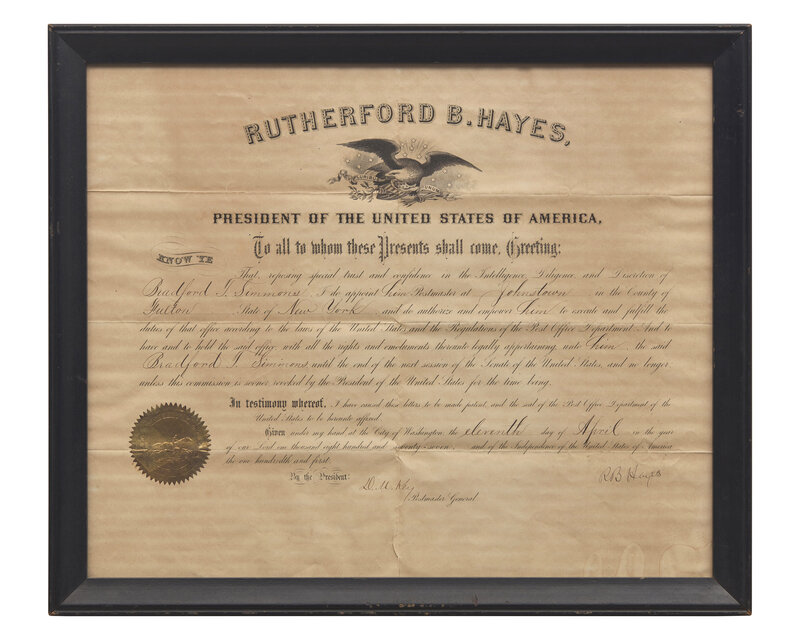 RUTHERFORD B. HAYES,
E PLURIBUS UNUM
PRESIDENT OF THE UNITED STATES OF AMERICA,
To all to whom these Presents shall come, Greeting:
KNOW YE
That, reposing special trust and confidence in the Intelligence, Diligence, and Discretion of
Bradford T. Simmons, I do appoint him Postmaster at Johnstown in the County of
Fulton State of New York and do authorize and empower him to execute and fulfill the
duties of that office according to the laws of the United States and the Regulations of the Post Office Department: And to
have and to hold the said office, with all the rights and emoluments thereunto legally appertaining, unto him the said
Bradford T. Simmons, until the end of the next session of the Senate of the United States, and no longer
unless this commission is sooner revoked by the President of the United States for the time being.
In testimony whereof, I have caused these letters to be made patent, and the seal of the Post Office Department of the
United States to be hereunto affixed.
Given under my hand, at the City of Washington, the eleventh day of April in the year
of our Lord one thousand eight hundred and seventy-seven, and of the Independence of the United States of America
the one hundredth and first.
By the President:
D. M. Key
R B Hayes
Postmaster General